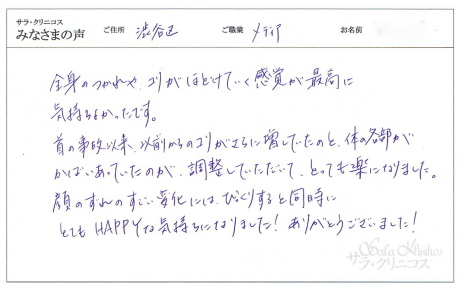 サラ・クリニコス
みなさまの声 ご住所 渋谷区 ご職業 メディア お名前
全身のつかれや、コリがほどけていく感覚が最高に
気持ちよかったです。
首の事故以来、以前からのコリがさらに増していたのと、体の各部が
かばいあっていたのが、調整していただいて、とっても楽になりました。
顔のずれのすごい変化には、びっくりすると同時に
とてもHAPPYな気持ちになりました！ありがとうございました！
Sala Klinikos
サラ・クリニコス